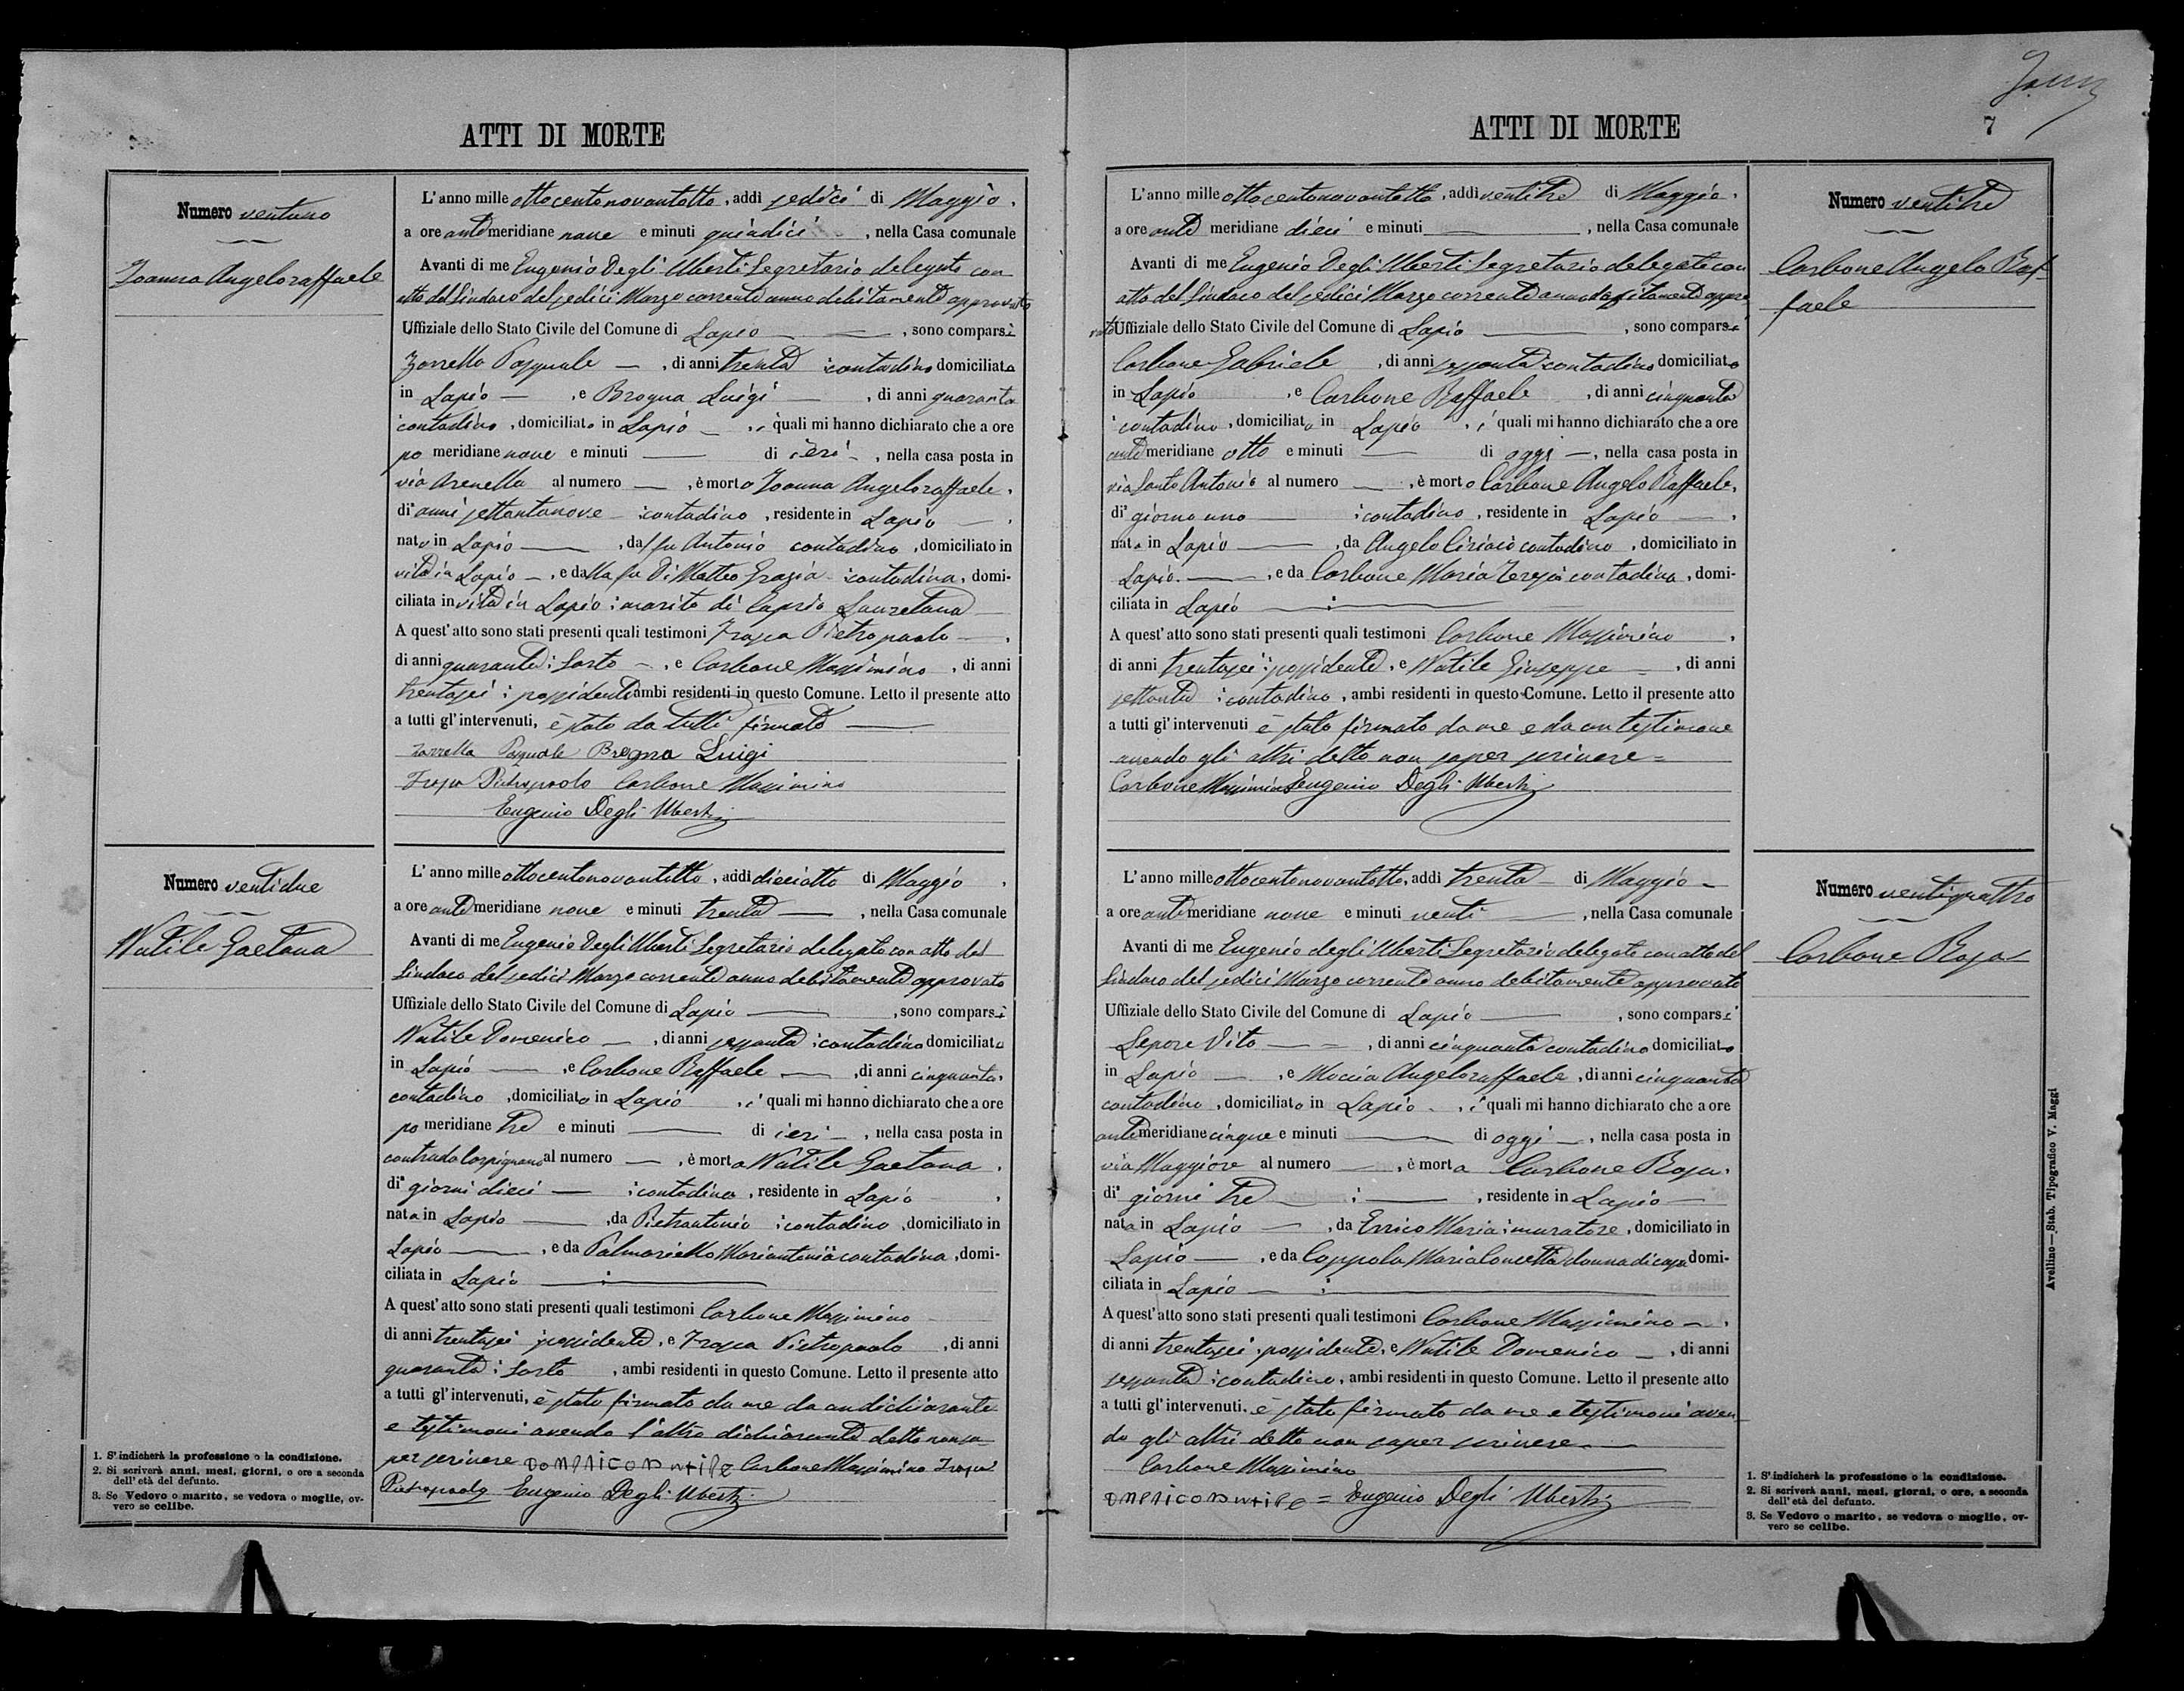 ATTI DI MORTE
Numero ventuno
Ioanna Angeloraffaele
L'anno mille ottocentonovantotto, addì sedici di Maggio,
a ore antimeridiane nove e minuti quindici, nella Casa comunale
Avanti di me Eugenio Degli Uberti Segretario delegato con
atto del Sindaco del sedici Marzo corrente anno debitamente approvato
Uffiziale dello Stato Civile del Comune di Lapio, sono comparsi
Zarrella Pasquale, di anni trenta contadino domiciliato
in Lapio, e Brogna Luigi, di anni quaranta
contadino, domiciliato in Lapio, i quali mi hanno dichiarato che a ore
po meridiane nove e minuti — di ieri, nella casa posta in
via Arenella al numero —, è morto Ioanna Angeloraffaele,
di anni settantanove contadino, residente in Lapio,
nato in Lapio, dal fu Antonio contadino, domiciliato in
vita in Lapio, e dalla fu Di Matteo Grazia contadina, domi-
ciliata in vita in Lapio: marito di Caprio Lauretana
A quest'atto sono stati presenti quali testimoni Frasca Pietropaolo,
di anni quaranta: Sarto, e Carbone Massimino, di anni
trentasei; possidente ambi residenti in questo Comune. Letto il presente atto
a tutti gl'intervenuti, è stato da tutti firmato
Zarrella Pasquale Brogna Luigi
Frasca Pietropaolo Carbone Massimino
Eugenio Degli Uberti
Numero ventidue
Nutile Gaetana
L'anno mille ottocentonovantotto, addì dieciotto di Maggio,
a ore antimeridiane nove e minuti trenta, nella Casa comunale
Avanti di me Eugenio Degli Uberti Segretario delegato con atto del
Sindaco del sedici Marzo corrente anno debitamente approvato
Uffiziale dello Stato Civile del Comune di Lapio, sono comparsi
Nutile Domenico, di anni sessanta: contadino domiciliato
in Lapio, e Carbone Raffaele, di anni cinquanta,
contadino, domiciliato in Lapio, i quali mi hanno dichiarato che a ore
po meridiane tre e minuti — di ieri, nella casa posta in
contrada Carpignano al numero —, è morta Nutile Gaetana,
di giorni dieci: contadina, residente in Lapio,
nata in Lapio, da Pietrantonio: contadino, domiciliato in
Lapio, e da Palmariello Mariantonia contadina, domi-
ciliata in Lapio
A quest'atto sono stati presenti quali testimoni Carbone Massimino
di anni trentasei possidente, e Frasca Pietropaolo, di anni
quaranta: Sarto, ambi residenti in questo Comune. Letto il presente atto
a tutti gl'intervenuti, è stato firmato da me da un dichiarante
e testimoni avendo l'altro dichiarante detto non sa-
per scrivere Domenico Nutile Carbone Massimino Frasca
Pietropaolo Eugenio Degli Uberti
1. S'indicherà la professione o la condizione.
2. Si scriverà anni, mesi, giorni, o ore a seconda
dell'età del defunto.
3. Se Vedovo o marito, se vedova o moglie, ov-
vero se celibe.
ATTI DI MORTE
7
L'anno mille ottocentonovantotto, addì ventitre di Maggio,
a ore anti meridiane dieci e minuti —, nella Casa comunale
Avanti di me Eugenio Degli Uberti Segretario delegato con
atto del Sindaco del sedici Marzo corrente anno debitamente appro
vato Uffiziale dello Stato Civile del Comune di Lapio, sono comparsi
Carbone Gabriele, di anni sessanta contadino domiciliato
in Lapio, e Carbone Raffaele, di anni cinquanta
contadino, domiciliato in Lapio, i quali mi hanno dichiarato che a ore
anti meridiane otto e minuti — di oggi, nella casa posta in
via Santo Antonio al numero —, è morto Carbone Angelo Raffaele,
di giorno uno: contadino, residente in Lapio,
nato in Lapio, da Angelo Ciriaco contadino, domiciliato in
Lapio, e da Carbone Maria Teresa contadina, domi-
ciliata in Lapio
A quest'atto sono stati presenti quali testimoni Carbone Massimino,
di anni trentasei: possidente, e Nutile Giuseppe, di anni
settanta: contadino, ambi residenti in questo Comune. Letto il presente atto
a tutti gl'intervenuti è stato firmato da me e da un testimone
avendo gli altri detto non saper scrivere =
Carbone Massimino Eugenio Degli Uberti
Numero ventitre
Carbone Angelo Raf-
faele
L'anno mille ottocentonovantotto, addì trenta di Maggio
a ore antimeridiane nove e minuti venti, nella Casa comunale
Avanti di me Eugenio degli Uberti Segretario delegato con atto del
Sindaco del sedici Marzo corrente anno debitamente approvato
Uffiziale dello Stato Civile del Comune di Lapio, sono comparsi
Lepore Vito, di anni cinquanta contadino domiciliato
in Lapio, e Moccia Angeloraffaele, di anni cinquanta
contadino, domiciliato in Lapio, i quali mi hanno dichiarato che a ore
antimeridiane cinque e minuti — di oggi, nella casa posta in
via Maggiore al numero —, è morta Carbone Rosa,
di giorni tre: —, residente in Lapio
nata in Lapio, da Errico Maria: muratore, domiciliato in
Lapio, e da Coppola Maria Concetta donna di casa domi-
ciliata in Lapio
A quest'atto sono stati presenti quali testimoni Carbone Massimino,
di anni trentasei: possidente, e Nutile Domenico, di anni
sessanta: contadino, ambi residenti in questo Comune. Letto il presente atto
a tutti gl'intervenuti, è stato firmato da me e testimoni aven-
do gli altri detto non saper scrivere
Carbone Massimino
Domenico Nutile = Eugenio Degli Uberti
Numero ventiquattro
Carbone Rosa
1. S'indicherà la professione o la condizione.
2. Si scriverà anni, mesi, giorni, o ore, a seconda
dell'età del defunto.
3. Se Vedovo o marito, se vedova o moglie, ov-
vero se celibe.
Avellino—Stab. Tipografico V. Maggi